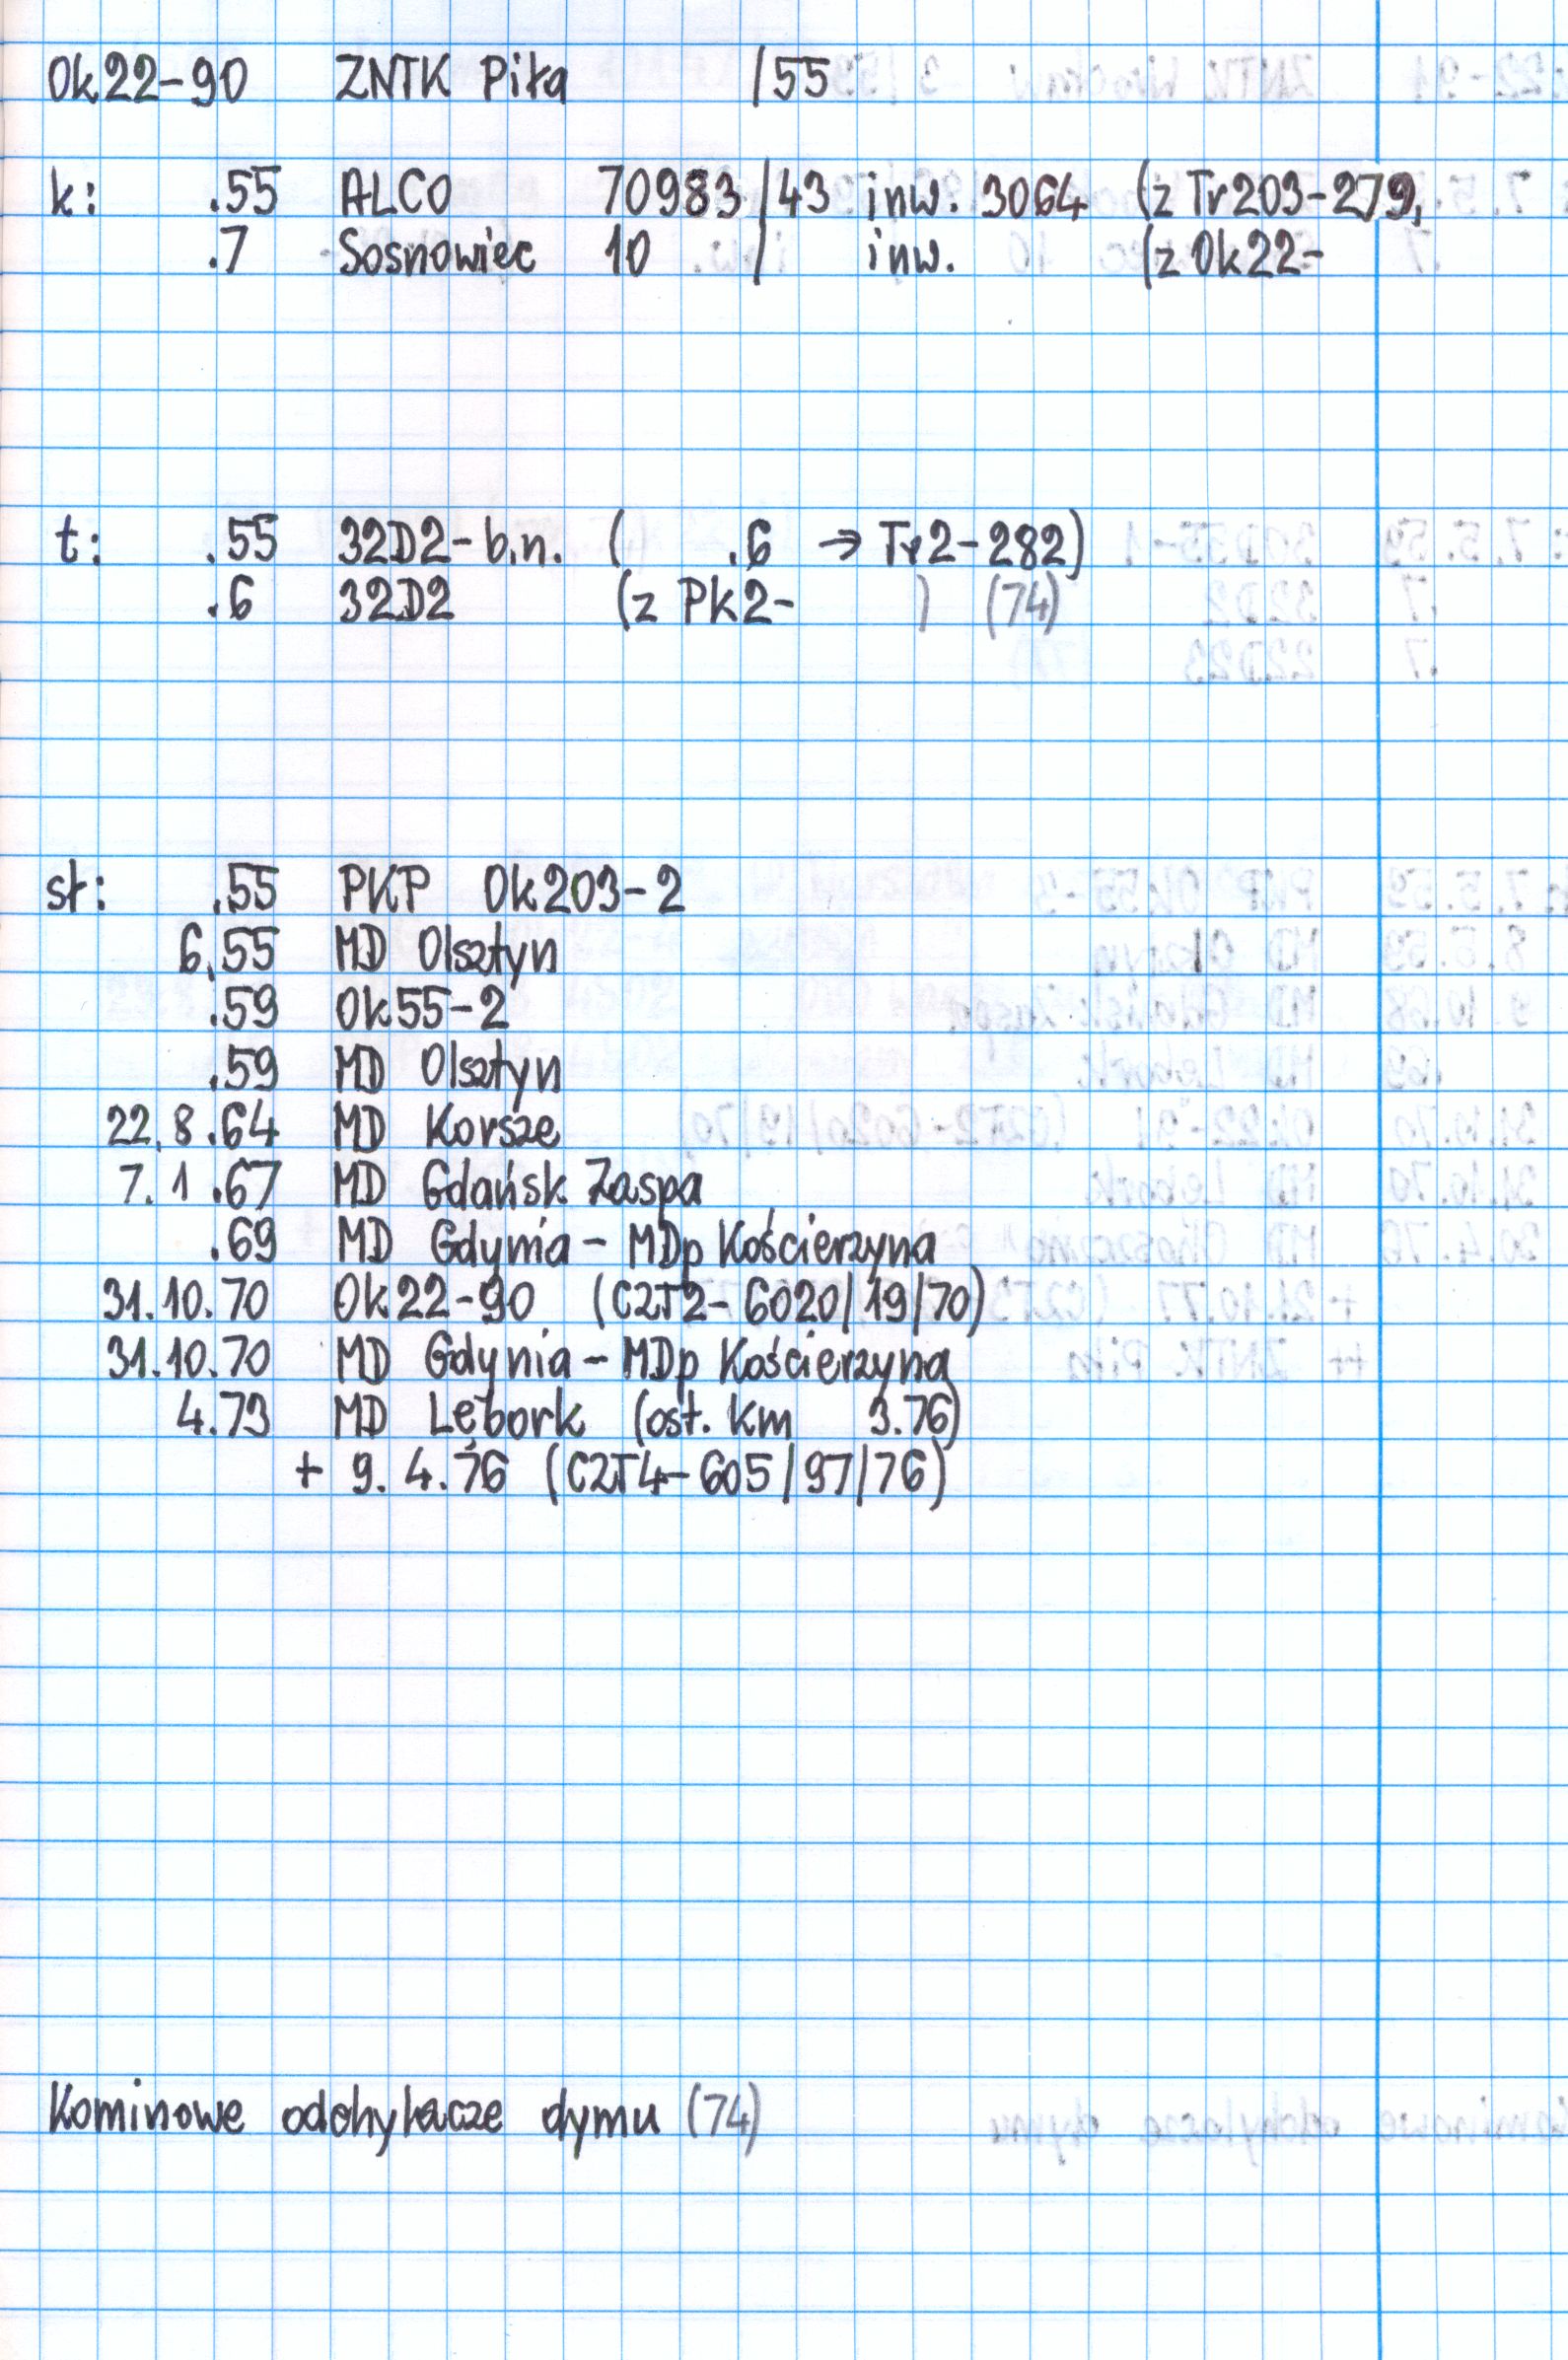 Ok22-90 ZNTK Piła /55
k: .55 ALCO 70983/43 inw. 3064 (z Tr203-279,
.7 Sosnowiec 10 / inw. (z Ok22-
t: .55 32D2-b.n. ( .6 → Tr2-282)
.6 32D2 (z Pk2- ) (74)
st: .55 PKP Ok203-2
6.55 MD Olsztyn
.59 Ok55-2
.59 MD Olsztyn
22.8.64 MD Korsze
7.1.67 MD Gdańsk Zaspa
.69 MD Gdynia - MDp Kościerzyna
31.10.70 Ok22-90 (CZT2-6020/19/70)
31.10.70 MD Gdynia - MDp Kościerzyna
4.73 MD Lębork (ost. km 3.76)
+ 9.4.76 (CZT4-605/97/76)
Kominowe odchylacze dymu (74)